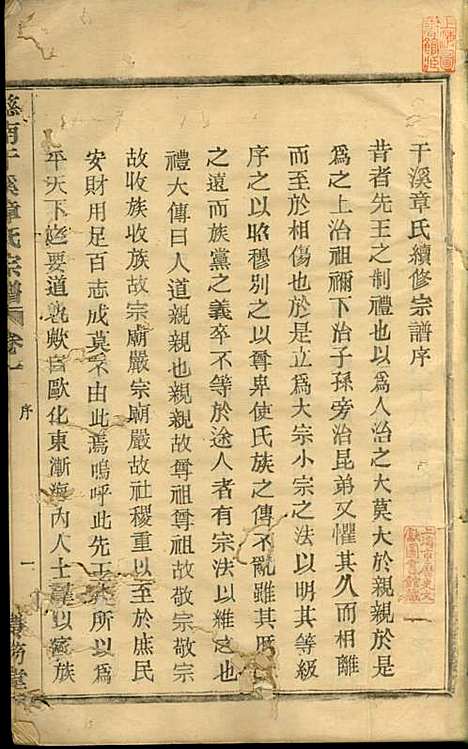 干溪章氏續修宗譜序
昔者先王之制禮也以為人治之大莫大於親親於是
為之上治祖禰下治子孫旁治昆弟又懼其久而相離
而至於相傷也於是立為大宗小宗之法以明其等級
序之以昭穆別之以尊卑使氏族之傳不亂雖其歷
之遠而族黨之義卒不等於途人者有宗法以維之也
禮大傳曰人道親親也親親故尊祖尊祖故敬宗敬宗
故收族收族故宗廟嚴宗廟嚴故社稷重以至於庶民
安財用足百志成莫不由此焉嗚呼此先王所以為
平天下之要道歟自歐化東漸海內人士以家族
慈西干溪章氏宗譜
卷一
序
一
上海圖書館藏
上海市歷史文獻圖書館藏